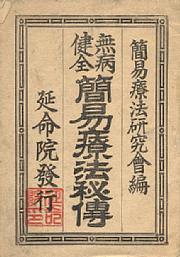 簡易療法研究會編
無病健全
簡易療法秘傳
延命院發行